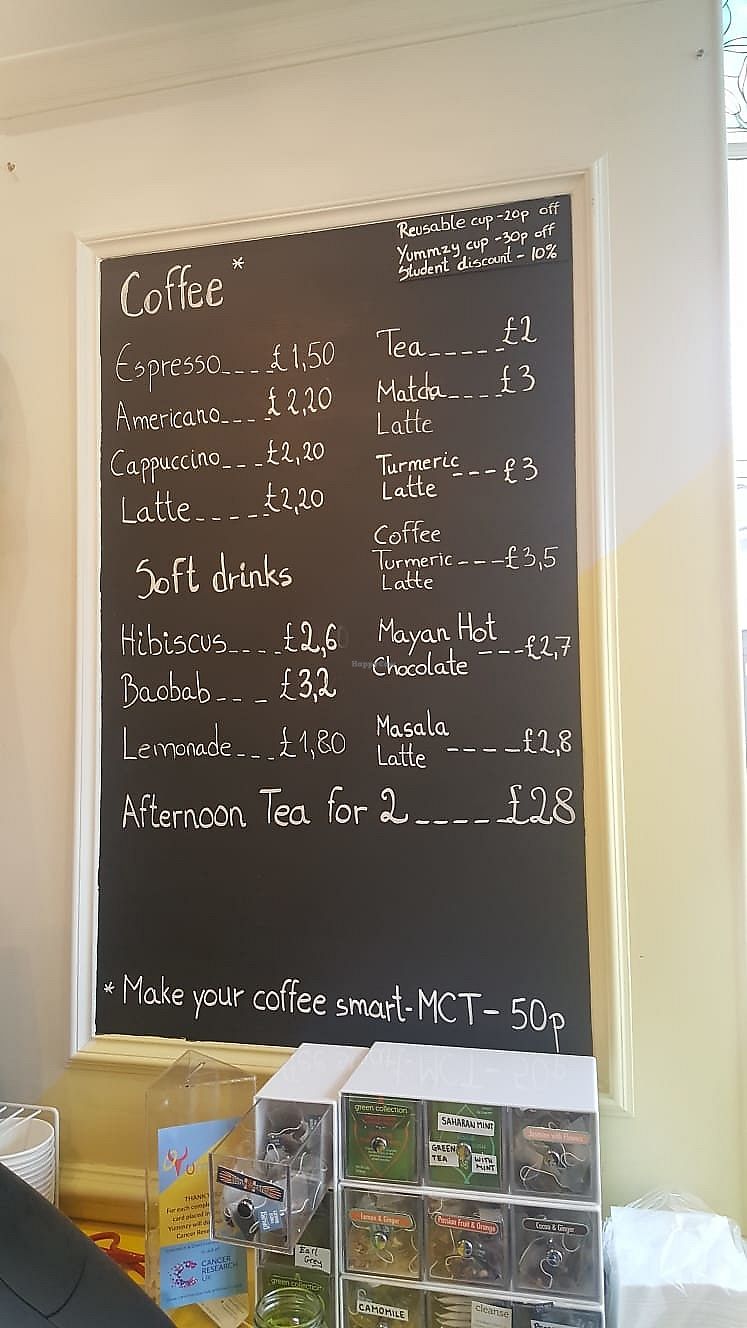 Reusable cup-20p off
Yummzy cup -30p off
Student discount - 10%
Coffee*
Espresso____£1,50
Americano___£2,20
Cappuccino___£2,20
Latte_____£2,20
Soft drinks
Hibiscus____£2,60
Baobab___£3,2
Lemonade___£1,80
Tea_____£2
Matcha____£3
Latte
Turmeric
Latte ---£3
Coffee
Turmeric---£3,5
Latte
Mayan Hot
Chocolate ---£2,7
Masala
Latte ----£2,8
Afternoon Tea for 2_____£28
* Make your coffee smart-MCT- 50p
HappyCow
green collection
SAHARAN MINT
GREEN TEA WITH MINT
Jasmine with Flowers
Lemon & Ginger
Passion Fruit & Orange
Cocoa & Ginger
Earl
Grey
green collection
CAMOMILE
cleanse
THANK
For each comple
card placed in
Yummzy will do
Cancer Rese
CANCER
RESEARCH
UK